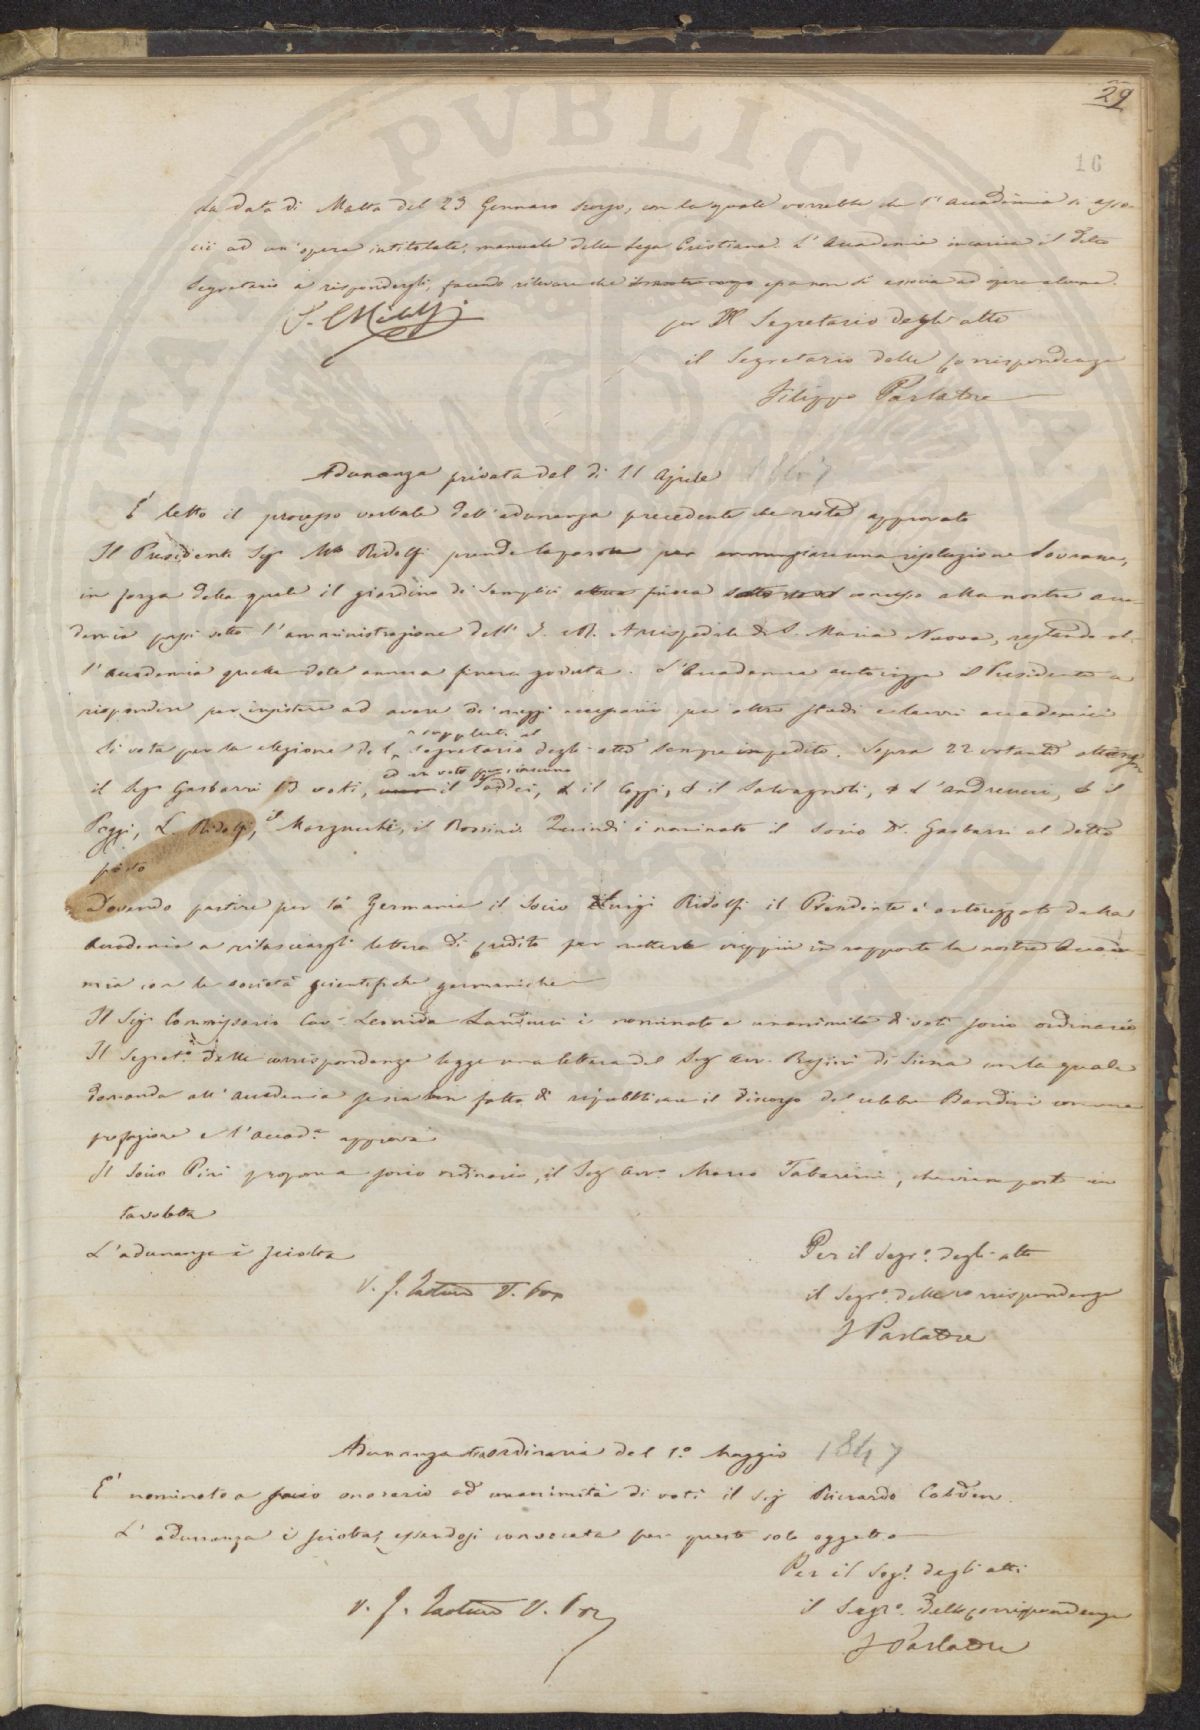 29
16
da data di Malta del 23 Gennaro scorso, con la quale vorrebbe che l'Accademia si asso-
cii ad un'opera intitolata, manuale della Lega Cristiana. L'Accademia incarica il detto
Segretario a rispondergli, facendo rilevare che il nostro corpo essa non si associa ad opere alcune.
per Il Segretario degli atti
il Segretario delle Corrispondenze
Filippo Parlatore
Adunanza privata del dì 11 Aprile 1847
È letto il processo verbale dell'adunanza precedente che resta approvato
Il Presidente Sigr Mse Ridolfi prende la parola per annunziare una risoluzione Sovrana,
in forza della quale il giardino de' Semplici finora concesso alla nostra acca-
demia passi sotto l'amministrazione dell'I. e R. Arcispedale di S. Maria Nuova, restando al-
l'Accademia quella dote annua finora goduta. L'Accademia autorizza il Presidente a
rispondere per insistere ad avere de' mezzi necessarii per altri studi e lavori accademici
Si vota per la elezione del supplente al segretario degli atti sempre impedito. Sopra 22 votanti ottenne
il Sigr Gasbarri 13 voti, ed un voto per ciascuno il Taddei, il Coppi, il Salvagnoli, L'Andreucci, e il
Poggi, L. Ridolfi, il Marzucchi, il Rossini. Quindi è nominato il socio Dr. Gasbarri al detto
posto
Dovendo partire per la Germania il Socio Luigi Ridolfi il Presidente è autorizzato dalla
Accademia a rilasciargli lettera di credito per mettere vieppiù in rapporto la nostra Accade-
mia con le società scientifiche germaniche
Il Sigr Commissario Cavr. Leonida Landucci è nominato a unanimità di voti socio ordinario
Il Segreto. delle corrispondenze legge una lettera del Sigr Avv. Rossini di Siena con la quale
domanda all'Accademia se sia ben fatto di ripubblicare il discorso del celebre Bandini con una
prefazione e l'Accada. approva
Il Socio Piri propone a socio ordinario, il Sigr Avvo. Marco Tabarrini, che viene posto in
tavoletta
L'adunanza è sciolta
Per il Segro. degli atti
il Segro. delle corrispondenze
F Parlatore
Adunanza straordinaria del 1.º Maggio 1847
È nominato a socio onorario ad unanimità di voti il sigr Riccardo Cobden.
L'adunanza è sciolta, essendosi convocata per questo solo oggetto
Per il Segr. degli atti
il Segro. delle corrispondenze
F Parlatore